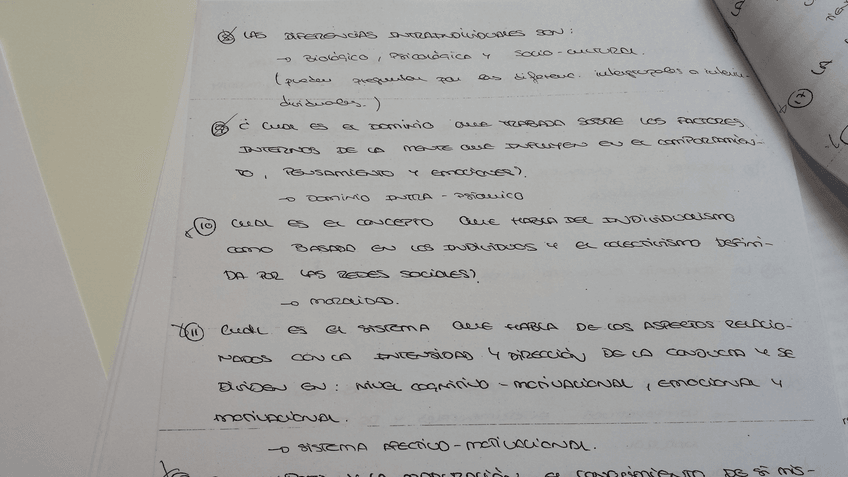 8) LAS DIFERENCIAS INTRAINDIVIDUALES SON:
→ Biológico, Psicológica y SOCIO-CULTURAL.
(pueden preguntar por las diferenc. intergrupales o interin-
dividuales.)
9) ¿ CUAL ES EL DOMINIO QUE TRABADA SOBRE LOS FACTORES
INTERNOS DE LA MENTE QUE INFLUYEN EN EL COMPORTAMIEN-
TO, PENSAMIENTO Y EMOCIONES?.
→ DOMINIO INTRA-PSIQUICO
10) CUAL ES EL CONCEPTO QUE HABLA DEL INDIVIDUALISMO
COMO BASADA EN LOS INDIVIDUOS Y EL COLECTIVISMO DEFINI-
DA POR LAS REDES SOCIALES?.
→ MORALIDAD.
11) CUAL ES EL SISTEMA QUE HABLA DE LOS ASPECTOS RELACIO-
NADOS CON LA INTENSIDAD Y DIRECCIÓN DE LA CONDUCTA Y SE
DIVIDEN EN: NIVEL COGNITIVO-MOTIVACIONAL, EMOCIONAL Y
MOTIVACIONAL.
→ SISTEMA AFECTIVO-MOTIVACIONAL.
LA MADURACIÓN, EL CONOCIMIENTO DE SÍ MIS-